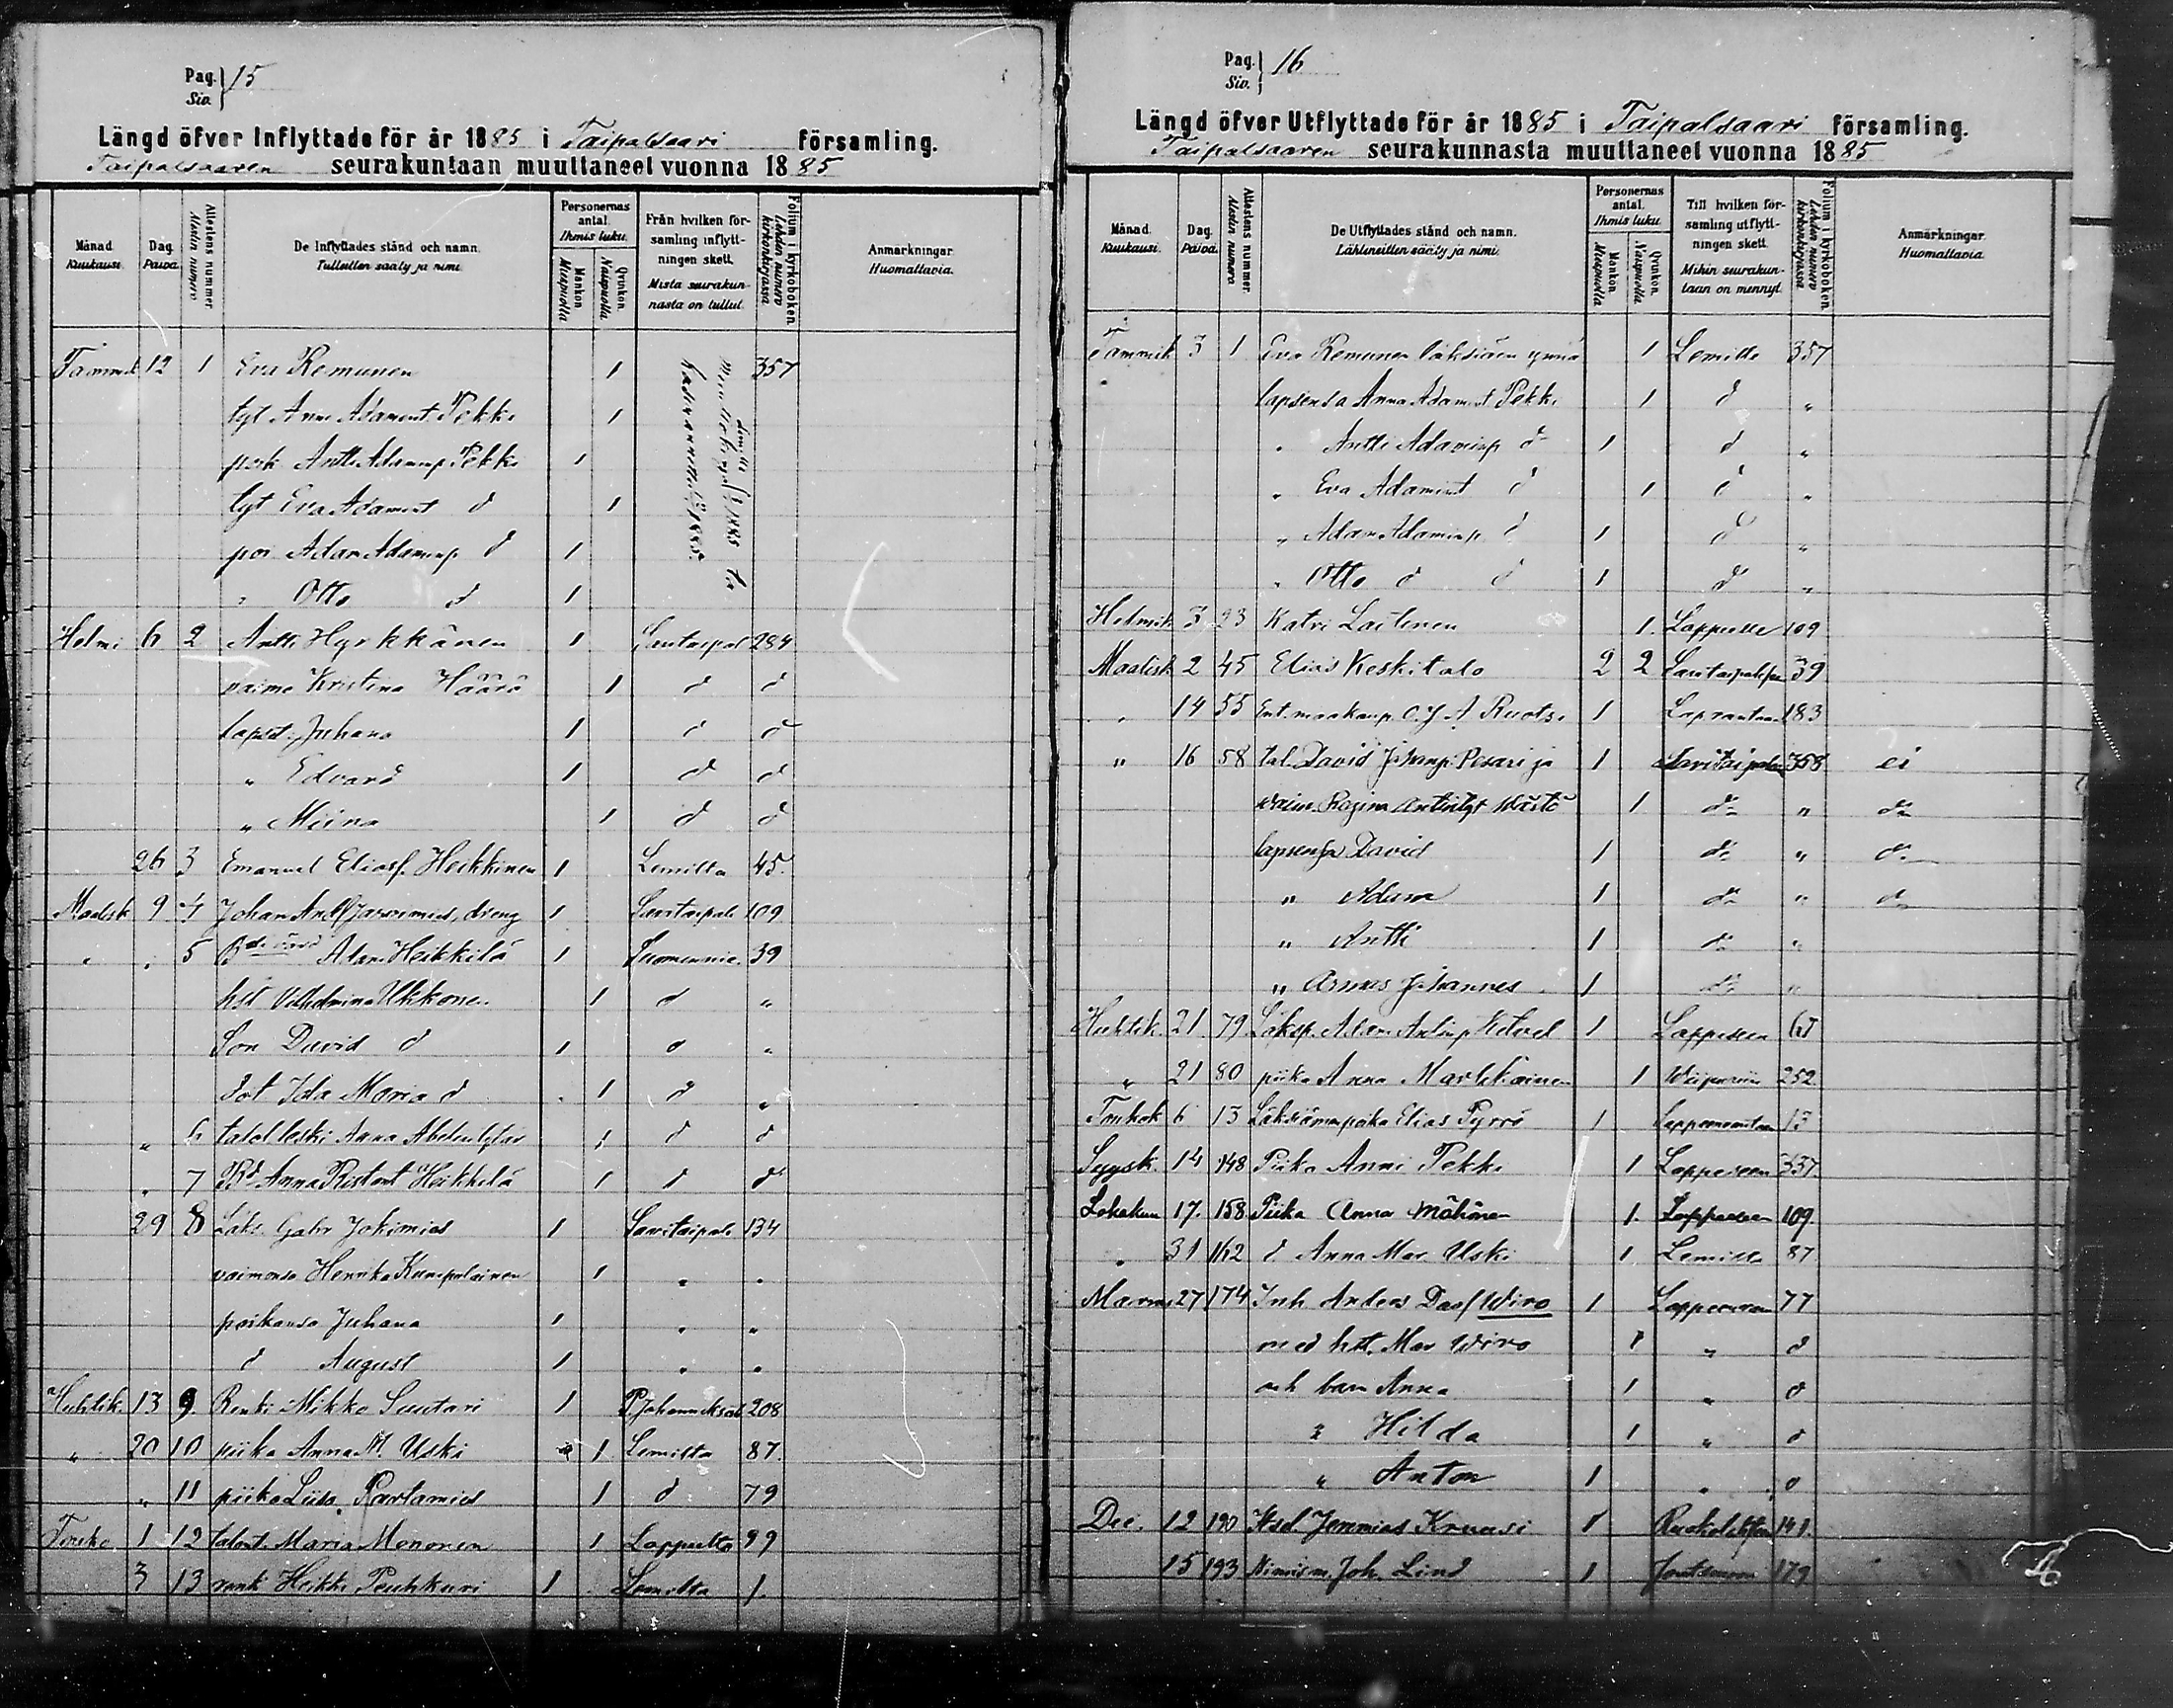 Pag. 15
Siv.
Längd öfver Inflyttade för år 1885 i Taipalsaari församling.
Taipalsaaren seurakuntaan muuttaneet vuonna 1885
Månad. Kuukausi.
Dag. Päivä.
Attestens nummer. Alestin numero.
De Inflyttades stånd och namn. Tulleitten sääty ja nimi.
Personernas antal. Ihmis luku.
Mankön. Miespuolia
Qvinkön. Naispuolia
Från hvilken församling inflyttningen skett. Mistä seurakunnasta on tullut.
Folium i kyrkoboken. Lehden numero kirkonkirjassa
Anmärkningar. Huomattavia.
Tammik 12 1 Eva Remunen 1 357
tyt Anna Adamint Pekki 1
poik Antti Adaminp Pekki 1
tyt Eva Adamint d 1
poi Adam Adaminp d 1
" Otto d 1
Helmi 6 2 Antti Hyrkkänen 1 Savitaipal 284
vaimo Kristina Häärä 1 d d
lapset Juhana 1 d d
" Edvard 1 d d
" Miina 1 d d
26 3 Emanuel Eliasf. Heikkinen 1 Lemilta 45.
Maalisk 9 4 Johan Andf Jarvimies, dreng 1 Savitaipale 109
" " 5 Adam Heikkilä 1 Suomennie. 39
hst Vilhelmina Ukkonen 1 d "
Son David d 1 d "
dot Ida Maria d 1 d "
" 6 talol leski Anna Abelintytär 1 d d
" 7 Anna Ristont Heikkilä 1 d d
29 8 Läks. Gabr Jokimies 1 Savitaipale 134
vaimonsa Henrika Kumpulainen 1 " "
poikansa Juhana 1 " "
d August 1 " "
Huhtik. 13 9. Renki Mikko Suutari 1 208
" 20 10 piika Anna M. Uski 1 Lemilta 87.
" 11 piika Liisa Partamies 1 d 79
Touko 1 12 talont. Maria Mononen 1 Lappeelta 99
3 13 renk Heikki Peuhkuri 1 Lemilta 1.
Pag. 16
Siv.
Längd öfver Utflyttade för år 1885 i Taipalsaari församling.
Taipalsaaren seurakunnasta muuttaneet vuonna 1885
Månad. Kuukausi.
Dag. Päivä.
Attestens nummer. Alestin numero.
De Utflyttades stånd och namn. Lähteneitten sääty ja nimi.
Personernas antal. Ihmis luku.
Mankön. Miespuolia
Qvinkön. Naispuolia
Till hvilken församling utflyttningen skett. Mihin seurakuntaan on mennyt.
Folium i kyrkoboken. Lehden numero kirkonkirjassa
Anmärkningar. Huomattavia.
Tammik 3 1 Eva Remunen 1 Lemille 357
lapsensa Anna Adamint Pekki 1 d "
" Antti Adaminp d 1 d "
" Eva Adamint d 1 d "
" Adam Adaminp d 1 d "
" Otto d d 1 d "
Helmik 3 23 Katri Laitinen 1. Lappeelle 109
Maalisk 2 45 Elias Keskitalo 2 2 39
" 14 55 Ent. maakaup. C. J. A. Ruotsi 1 183
" 16 58 tal. David Juhanp. Pesari ja 1 358 ei
vaim. Regina Antintyt 1 d:o " d:o
lapsensa David 1 d:o " d:o
" Adam 1 d:o " d:o
" Antti 1 d:o "
" Armas Johannes 1 d:o "
Huhtik. 21. 79 Läksp. Adam Antinp 1 Lappeseen
" 21 80 piika Anna Martikainen 1 Wiipuriin 252
Toukok 6 13 Elias Pyrrö 1 Lappeenrantaan 13
Syysk. 14 148 Piika Anni Pekki 1 Lappeseen 337
Lokakuu 17. 158 Piika Anna Mähönen 1. Lappeseen 109.
" 31 162 d Anna Mar. Uski 1 Lemille 87
Marras 27 174 Inh Anders Davf Wiro 1 77
med hst. Mar Wiro 1 " d
och barn Anna 1 " d
" Hilda 1 " d
" Anton 1 " d
Dec. 12 190 Jeremias Kruusi 1 141.
15 193 Nimism. Joh. Lind 1 179